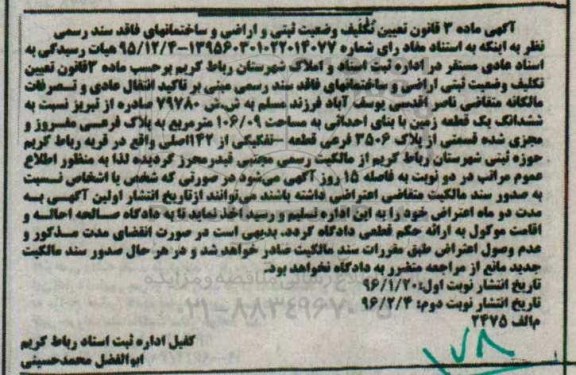 آگهی ماده ۳ قانون تعیین تکلیف وضعیت ثبتی و اراضی و ساختمانهای فاقد سند رسمی
نظر به اینکه به استناد مفاد رای شماره ۱۳۹۵۶۰۳۰۱۰۲۲۰۱۴۰۷۷-۹۵/۱۲/۴ هیات رسیدگی به
اسناد عادی مستقر در اداره ثبت اسناد و املاک شهرستان رباط کریم برحسب ماده ۳قانون تعیین
تکلیف وضعیت ثبتی اراضی و ساختمانهای فاقد سند رسمی مبنی بر تاکید انتقال عادی و تصرفات
مالکانه متقاضی ناصر اقدسی یوسف آباد فرزند مسلم به ش.ش ۷۹۷۸۰ صادره از تبریز نسبت به
ششدانگ یک قطعه زمین با بنای احداثی به مساحت ۱۰۶/۰۹ مترمربع به پلاک فرعی مفروز و
مجزی شده قسمتی از پلاک ۳۵۰۶ فرعی قطعه -تفکیکی از ۱۴۲اصلی واقع در قریه رباط کریم
حوزه ثبتی شهرستان رباط کریم از مالکیت رسمی مجتبی قیدرمحرز گردیده لذا به منظور اطلاع
عموم مراتب در دو نوبت به فاصله ۱۵ روز آگهی میشود در صورتی که شخص یا اشخاص نسبت
به صدور سند مالکیت متقاضی اعتراضی داشته باشند میتوانند ازتاریخ انتشار اولین آگهی به
مدت دو ماه اعتراض خود را به این اداره تسلیم و رسید اخذ نماید تا به دادگاه صالحه احاله و
اقامت موکول به ارائه حکم قطعی دادگاه گردد. بدیهی است در صورت انقضای مدت مذکور و
عدم وصول اعتراض طبق مقررات سند مالکیت صادر خواهد شد و در هر حال صدور سند مالکیت
جدید مانع از مراجعه متضرر به دادگاه نخواهد بود.
تاریخ انتشار نوبت اول: ۹۶/۱/۲۰
تاریخ انتشار نوبت دوم: ۹۶/۲/۴
م/الف ۲۴۷۵
کفیل اداره ثبت اسناد رباط کریم
ابوالفضل محمدحسینی
۱۷۸
۰۲۱-۸۸۳۴۹۶۷۰